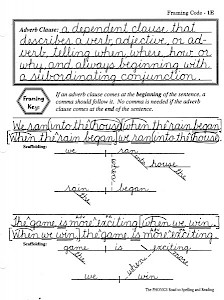 Framing Code - 1E
Adverb Clause: a dependent clause that
describes a verb, adjective, or ad-
verb, telling when, where, how or
why, and always beginning with
a subordinating conjunction.
Framing Key:
If an adverb clause comes at the beginning of the sentence, a
comma should follow it. No comma is needed if the adverb
clause comes at the end of the sentence.
We ran into the house when the rain began.
When the rain began, we ran into the house.
Scaffolding:
we ran
into the house
when
the rain began
The game is more exciting when we win.
When we win, the game is more exciting.
Scaffolding:
game is exciting
the more
when
we win
The PHONICS Road to Spelling and Reading